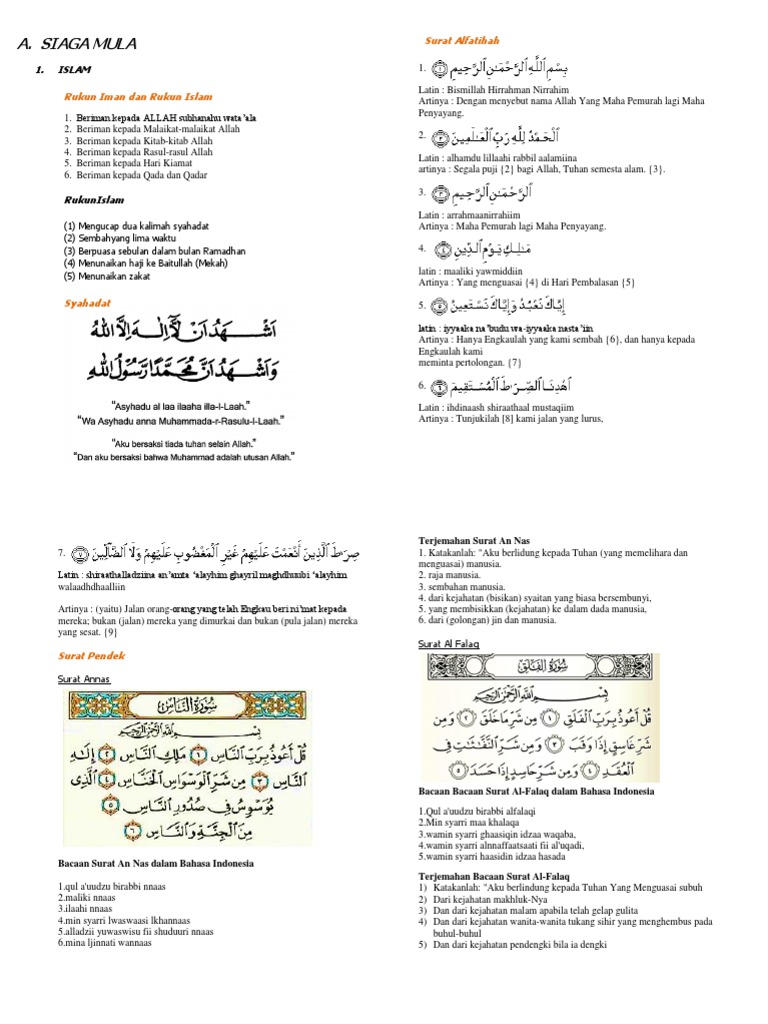 A. SIAGA MULA
1. ISLAM
Rukun Iman dan Rukun Islam
1. Beriman kepada ALLAH subhanahu wata 'ala
2. Beriman kepada Malaikat-malaikat Allah
3. Beriman kepada Kitab-kitab Allah
4. Beriman kepada Rasul-rasul Allah
5. Beriman kepada Hari Kiamat
6. Beriman kepada Qada dan Qadar
RukunIslam
(1) Mengucap dua kalimah syahadat
(2) Sembahyang lima waktu
(3) Berpuasa sebulan dalam bulan Ramadhan
(4) Menunaikan haji ke Baitullah (Mekah)
(5) Menunaikan zakat
Syahadat
اَشْهَدُ اَنْ لَآ اِلٰهَ اِلَّا اللهُ
وَاَشْهَدُ اَنَّ مُحَمَّدًا رَسُوْلُ اللهِ
"Asyhadu al laa ilaaha illa-l-Laah."
"Wa Asyhadu anna Muhammada-r-Rasulu-l-Laah."
"Aku bersaksi tiada tuhan selain Allah."
"Dan aku bersaksi bahwa Muhammad adalah utusan Allah."
Surat Alfatihah
1. بِسْمِ ٱللَّهِ ٱلرَّحْمَـٰنِ ٱلرَّحِيمِ ﴿١﴾
Latin : Bismillah Hirrahman Nirrahim
Artinya : Dengan menyebut nama Allah Yang Maha Pemurah lagi Maha
Penyayang.
2. ٱلْحَمْدُ لِلَّهِ رَبِّ ٱلْعَـٰلَمِينَ ﴿٢﴾
Latin : alhamdu lillaahi rabbil aalamiina
artinya : Segala puji {2} bagi Allah, Tuhan semesta alam. {3}.
3. ٱلرَّحْمَـٰنِ ٱلرَّحِيمِ ﴿٣﴾
Latin : arrahmaanirrahiim
Artinya : Maha Pemurah lagi Maha Penyayang.
4. مَـٰلِكِ يَوْمِ ٱلدِّينِ ﴿٤﴾
latin : maaliki yawmiddiin
Artinya : Yang menguasai {4} di Hari Pembalasan {5}
5. إِيَّاكَ نَعْبُدُ وَإِيَّاكَ نَسْتَعِينُ ﴿٥﴾
latin : iyyaaka na'budu wa-iyyaaka nasta'iin
Artinya : Hanya Engkaulah yang kami sembah {6}, dan hanya kepada
Engkaulah kami
meminta pertolongan. {7}
6. ٱهْدِنَا ٱلصِّرَٰطَ ٱلْمُسْتَقِيمَ ﴿٦﴾
Latin : ihdinaash shiraathaal mustaqiim
Artinya : Tunjukilah [8] kami jalan yang lurus,
7. صِرَٰطَ ٱلَّذِينَ أَنْعَمْتَ عَلَيْهِمْ غَيْرِ ٱلْمَغْضُوبِ عَلَيْهِمْ وَلَا ٱلضَّآلِّينَ ﴿٧﴾
Latin : shiraathalladziina an'amta 'alayhim ghayril maghdhuubi 'alayhim
walaadhdhaalliin
Artinya : (yaitu) Jalan orang-orang yang telah Engkau beri ni'mat kepada
mereka; bukan (jalan) mereka yang dimurkai dan bukan (pula jalan) mereka
yang sesat. {9}
Surat Pendek
Surat Annas
سُورَةُ النَّاسِ
بِسْمِ اللَّهِ الرَّحْمَٰنِ الرَّحِيمِ
قُلْ أَعُوذُ بِرَبِّ النَّاسِ ١ مَلِكِ النَّاسِ ٢ إِلَٰهِ
النَّاسِ ٣ مِن شَرِّ الْوَسْوَاسِ الْخَنَّاسِ ٤ الَّذِي
يُوَسْوِسُ فِي صُدُورِ النَّاسِ ٥
مِنَ الْجِنَّةِ وَالنَّاسِ ٦
Bacaan Surat An Nas dalam Bahasa Indonesia
1.qul a'uudzu birabbi nnaas
2.maliki nnaas
3.ilaahi nnaas
4.min syarri lwaswaasi lkhannaas
5.alladzii yuwaswisu fii shuduuri nnaas
6.mina ljinnati wannaas
Terjemahan Surat An Nas
1. Katakanlah: "Aku berlidung kepada Tuhan (yang memelihara dan
menguasai) manusia.
2. raja manusia.
3. sembahan manusia.
4. dari kejahatan (bisikan) syaitan yang biasa bersembunyi,
5. yang membisikkan (kejahatan) ke dalam dada manusia,
6. dari (golongan) jin dan manusia.
Surat Al Falaq
سُورَةُ الْفَلَقِ
بِسْمِ اللَّهِ الرَّحْمَٰنِ الرَّحِيمِ
قُلْ أَعُوذُ بِرَبِّ الْفَلَقِ ١ مِن شَرِّ مَا خَلَقَ ٢ وَمِن
شَرِّ غَاسِقٍ إِذَا وَقَبَ ٣ وَمِن شَرِّ النَّفَّاثَاتِ فِي
الْعُقَدِ ٤ وَمِن شَرِّ حَاسِدٍ إِذَا حَسَدَ ٥
Bacaan Bacaan Surat Al-Falaq dalam Bahasa Indonesia
1.Qul a'uudzu birabbi alfalaqi
2.Min syarri maa khalaqa
3.wamin syarri ghaasiqin idzaa waqaba,
4.wamin syarri alnnaffaatsaati fii al'uqadi,
5.wamin syarri haasidin idzaa hasada
Terjemahan Bacaan Surat Al-Falaq
1) Katakanlah: "Aku berlindung kepada Tuhan Yang Menguasai subuh
2) Dari kejahatan makhluk-Nya
3) Dan dari kejahatan malam apabila telah gelap gulita
4) Dan dari kejahatan wanita-wanita tukang sihir yang menghembus pada
buhul-buhul
5) Dan dari kejahatan pendengki bila ia dengki